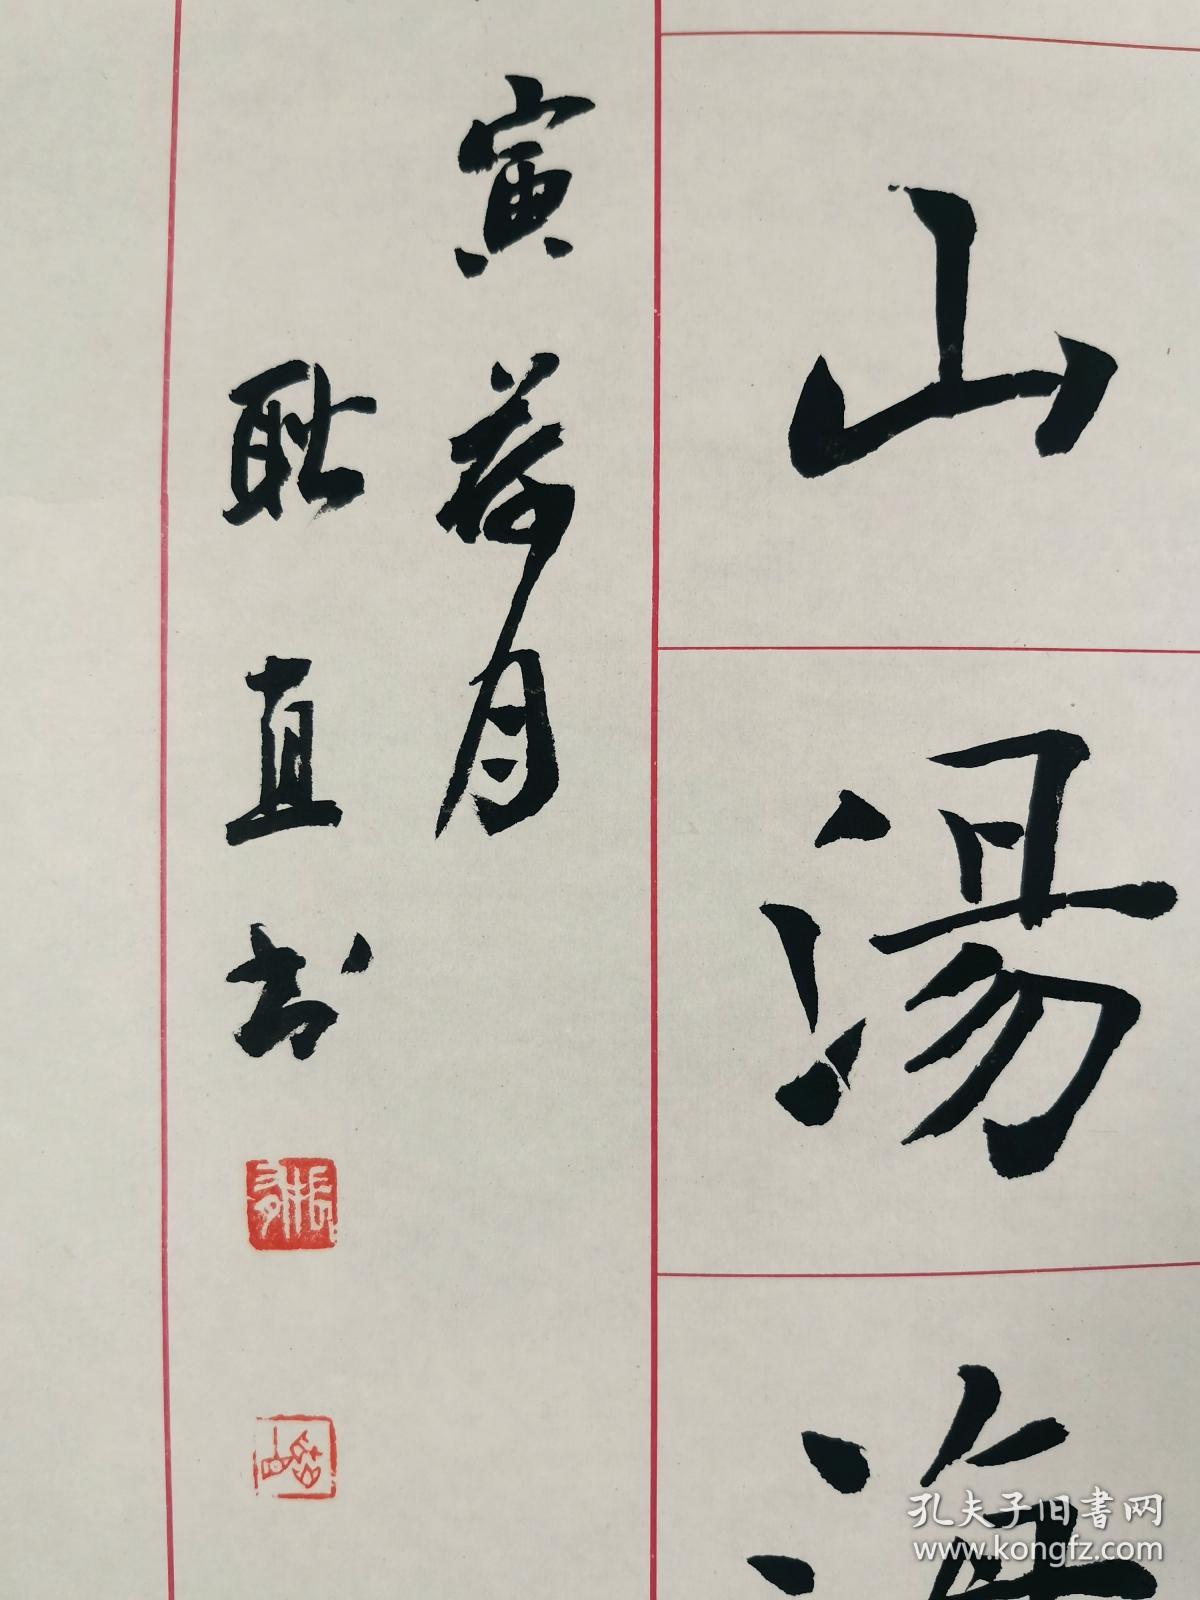 山湯海
寅荷月
耿直书
孔夫子旧书网
www.kongfz.com